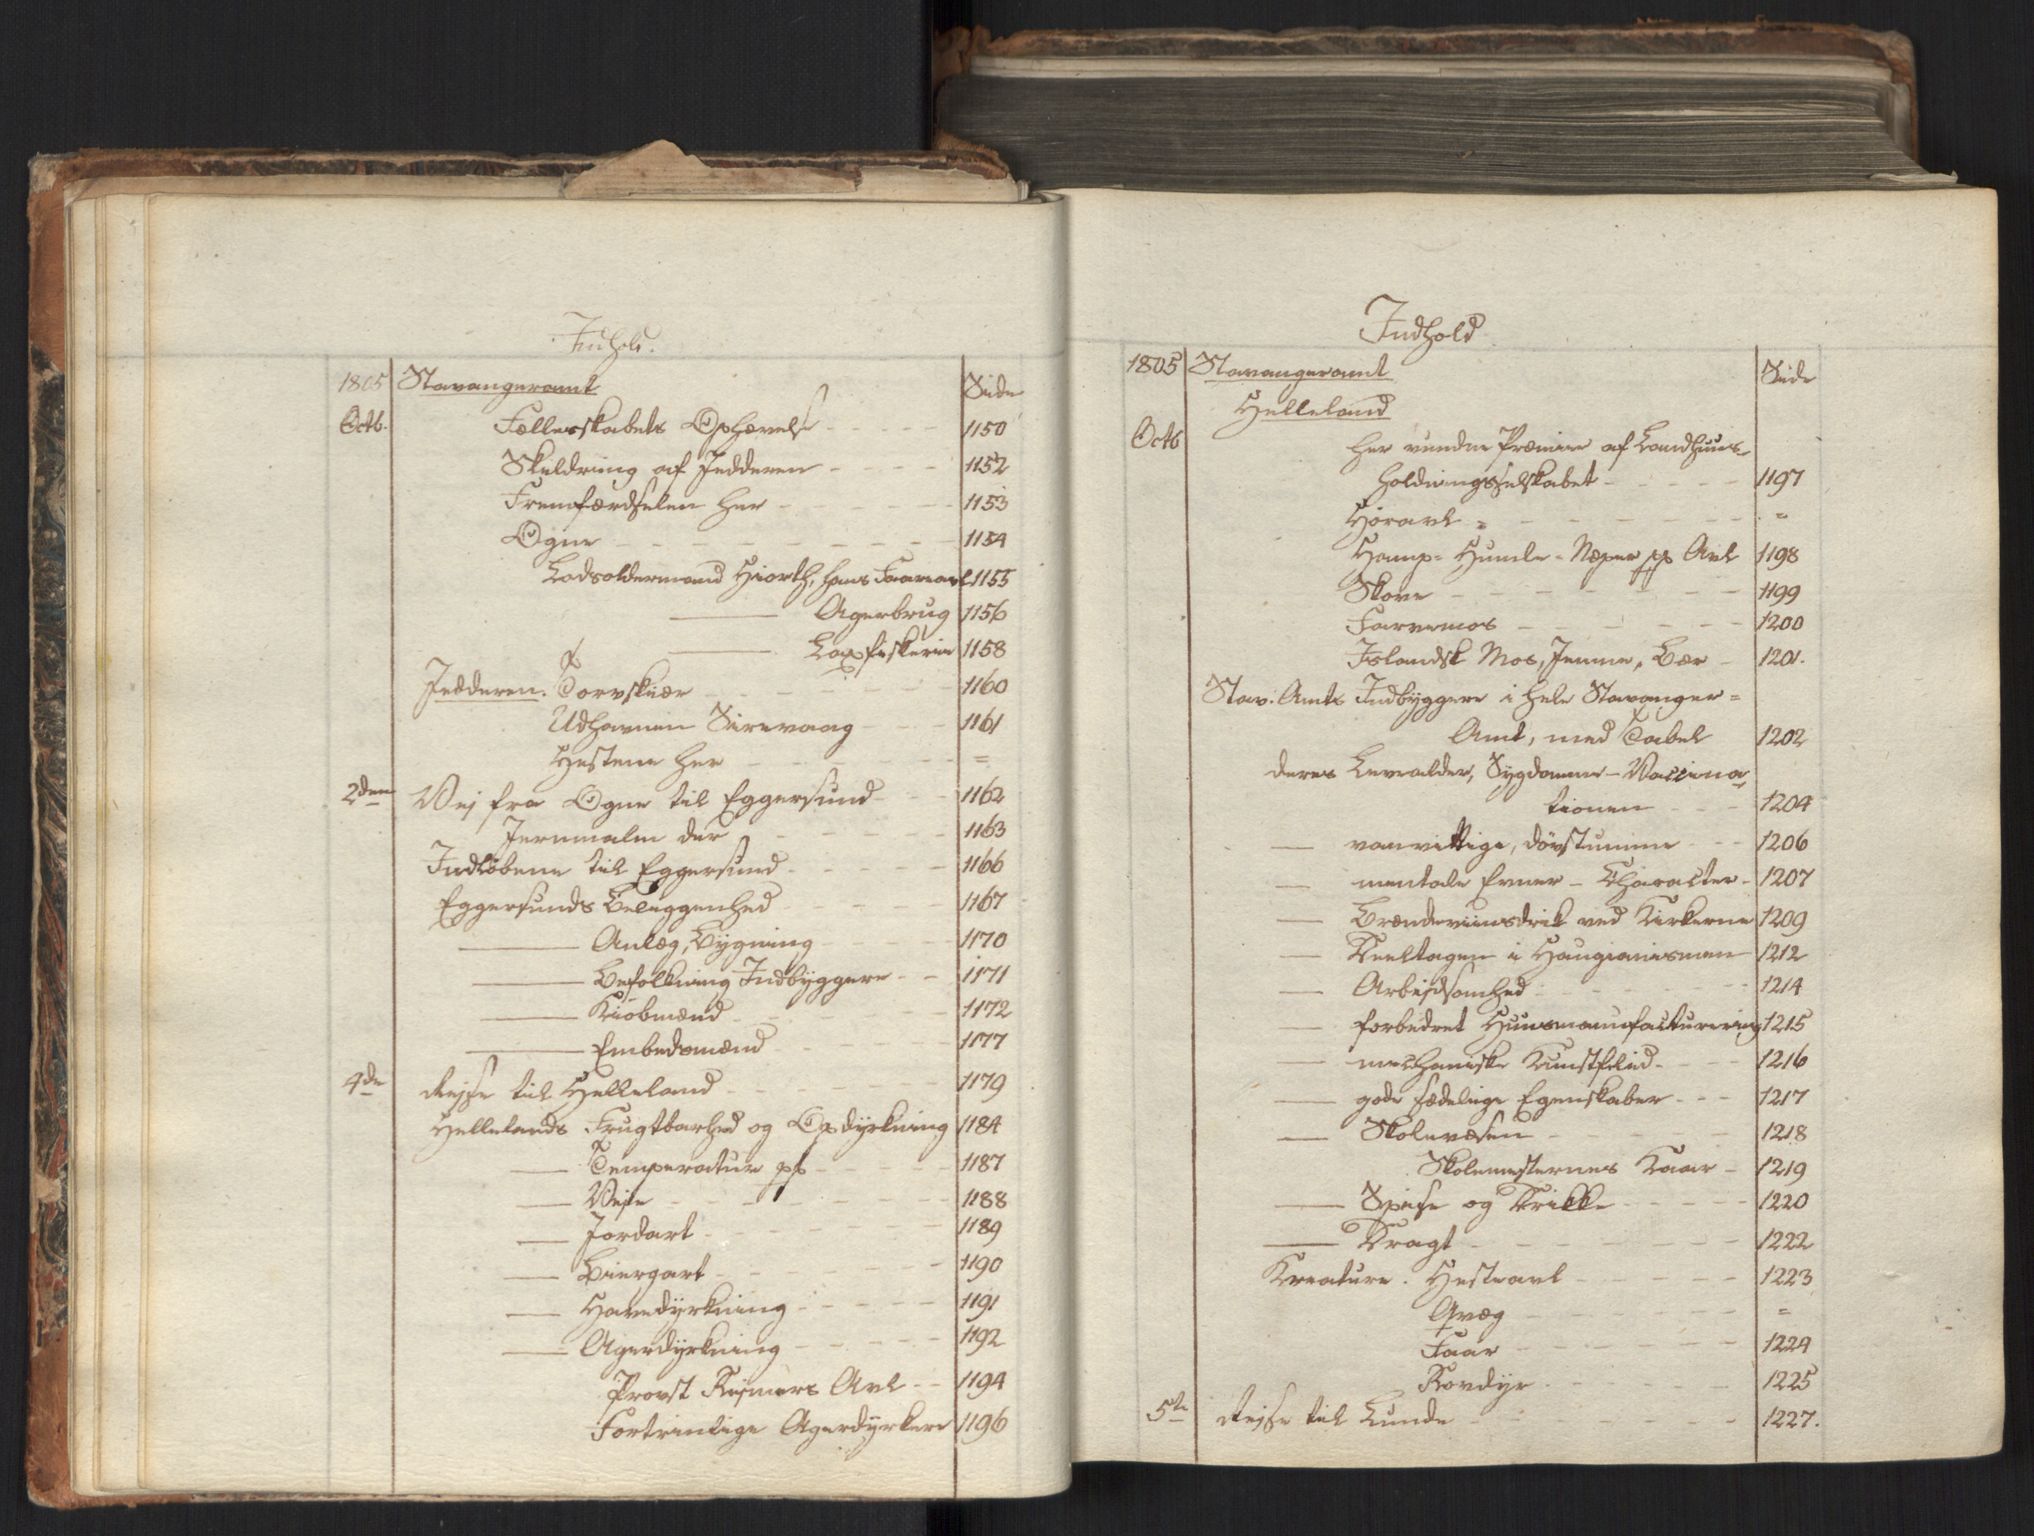 Indhold.
1805 Stavangeramt Side
Octb. Fællesskabets Ophævelse - - - - 1150
Skildring af Jedderen - - - - 1152
Fremfærdselen her - - - - - - 1153
Ogne - - - - - - - - 1154
Lodsoldermand Hiorth, hans Faareavl 1155
——— Agerbrug 1156
——— Laxfiskerie 1158
Jædderen. Torvskiær - - - - - - - 1160
Udhavnen Sirevaag - - - 1161
Hestene her - - - - - - =
2den Vej fra Ogne til Eggersund - - - 1162
Jernmalm der - - - - - - 1163
Indløbene til Eggersund - - - - - 1166
Eggersunds Beliggenhed - - - - 1167
——— Anlæg, Bygning - - - - 1170
——— Befolkning Indbyggere - - 1171
——— Kiøbmænd - - - - - - 1172
——— Embedsmænd - - - - - 1177
4de Rejse til Helleland - - - - - - 1179
Hellelands Frugtbarhed og Opdyrkning 1184
—— Temperatur pp - - - - - 1187
—— Veje - - - - - - - 1188
—— Jordart - - - - - - 1189
—— Biergart - - - - - - 1190
—— Havedyrkning - - - - - 1191
—— Agerdyrkning - - - - - 1192
Provst Rejmers Avl - - 1194
Fortrinlige Agerdyrkere 1196
Indhold
1805 Stavangeramt Side
Helleland
Octb her vundne Præmier af Landhuus-
holdningsselskabet - - - - - 1197
Høravl - - - - - - - - =
Hamp- Humle- Næper pp Avl 1198
Skove - - - - - - - - 1199
Farvemos - - - - - - 1200
Islandsk Mos, Jemne, Bær - 1201.
Stav: Amts Indbyggere i hele Stavanger=
Amt, med Tabel 1202
deres Levealder, Sygdomme - Vaccina
tionen - - - 1204
—— vanvittige, døvstumme - - 1206
—— mentale Evner - Character - 1207
—— Brændeviinsdrik ved Kirkerne 1209
—— Deeltagen i Haugianismen 1212
—— Arbejdsomhed - - - - - - - 1214
—— forbedret Huusmanufacturering 1215
—— mechaniske Kunstfliid - - - - 1216
—— gode sædelige Egenskaber - - - 1217
—— Skolevæsen - - - - - - 1218
Skolemesternes Kaar - 1219
—— Spise og Drikke - - - - - 1220
—— Dragt - - - - - - - - 1222
Kreature. Hesteavl - - - - - 1223
Qvæg - - - - - - =
Faar - - - - - - 1224
Rovdyr - - - - - - 1225
5te Rejse til Lunde - - - - - - - 1227.